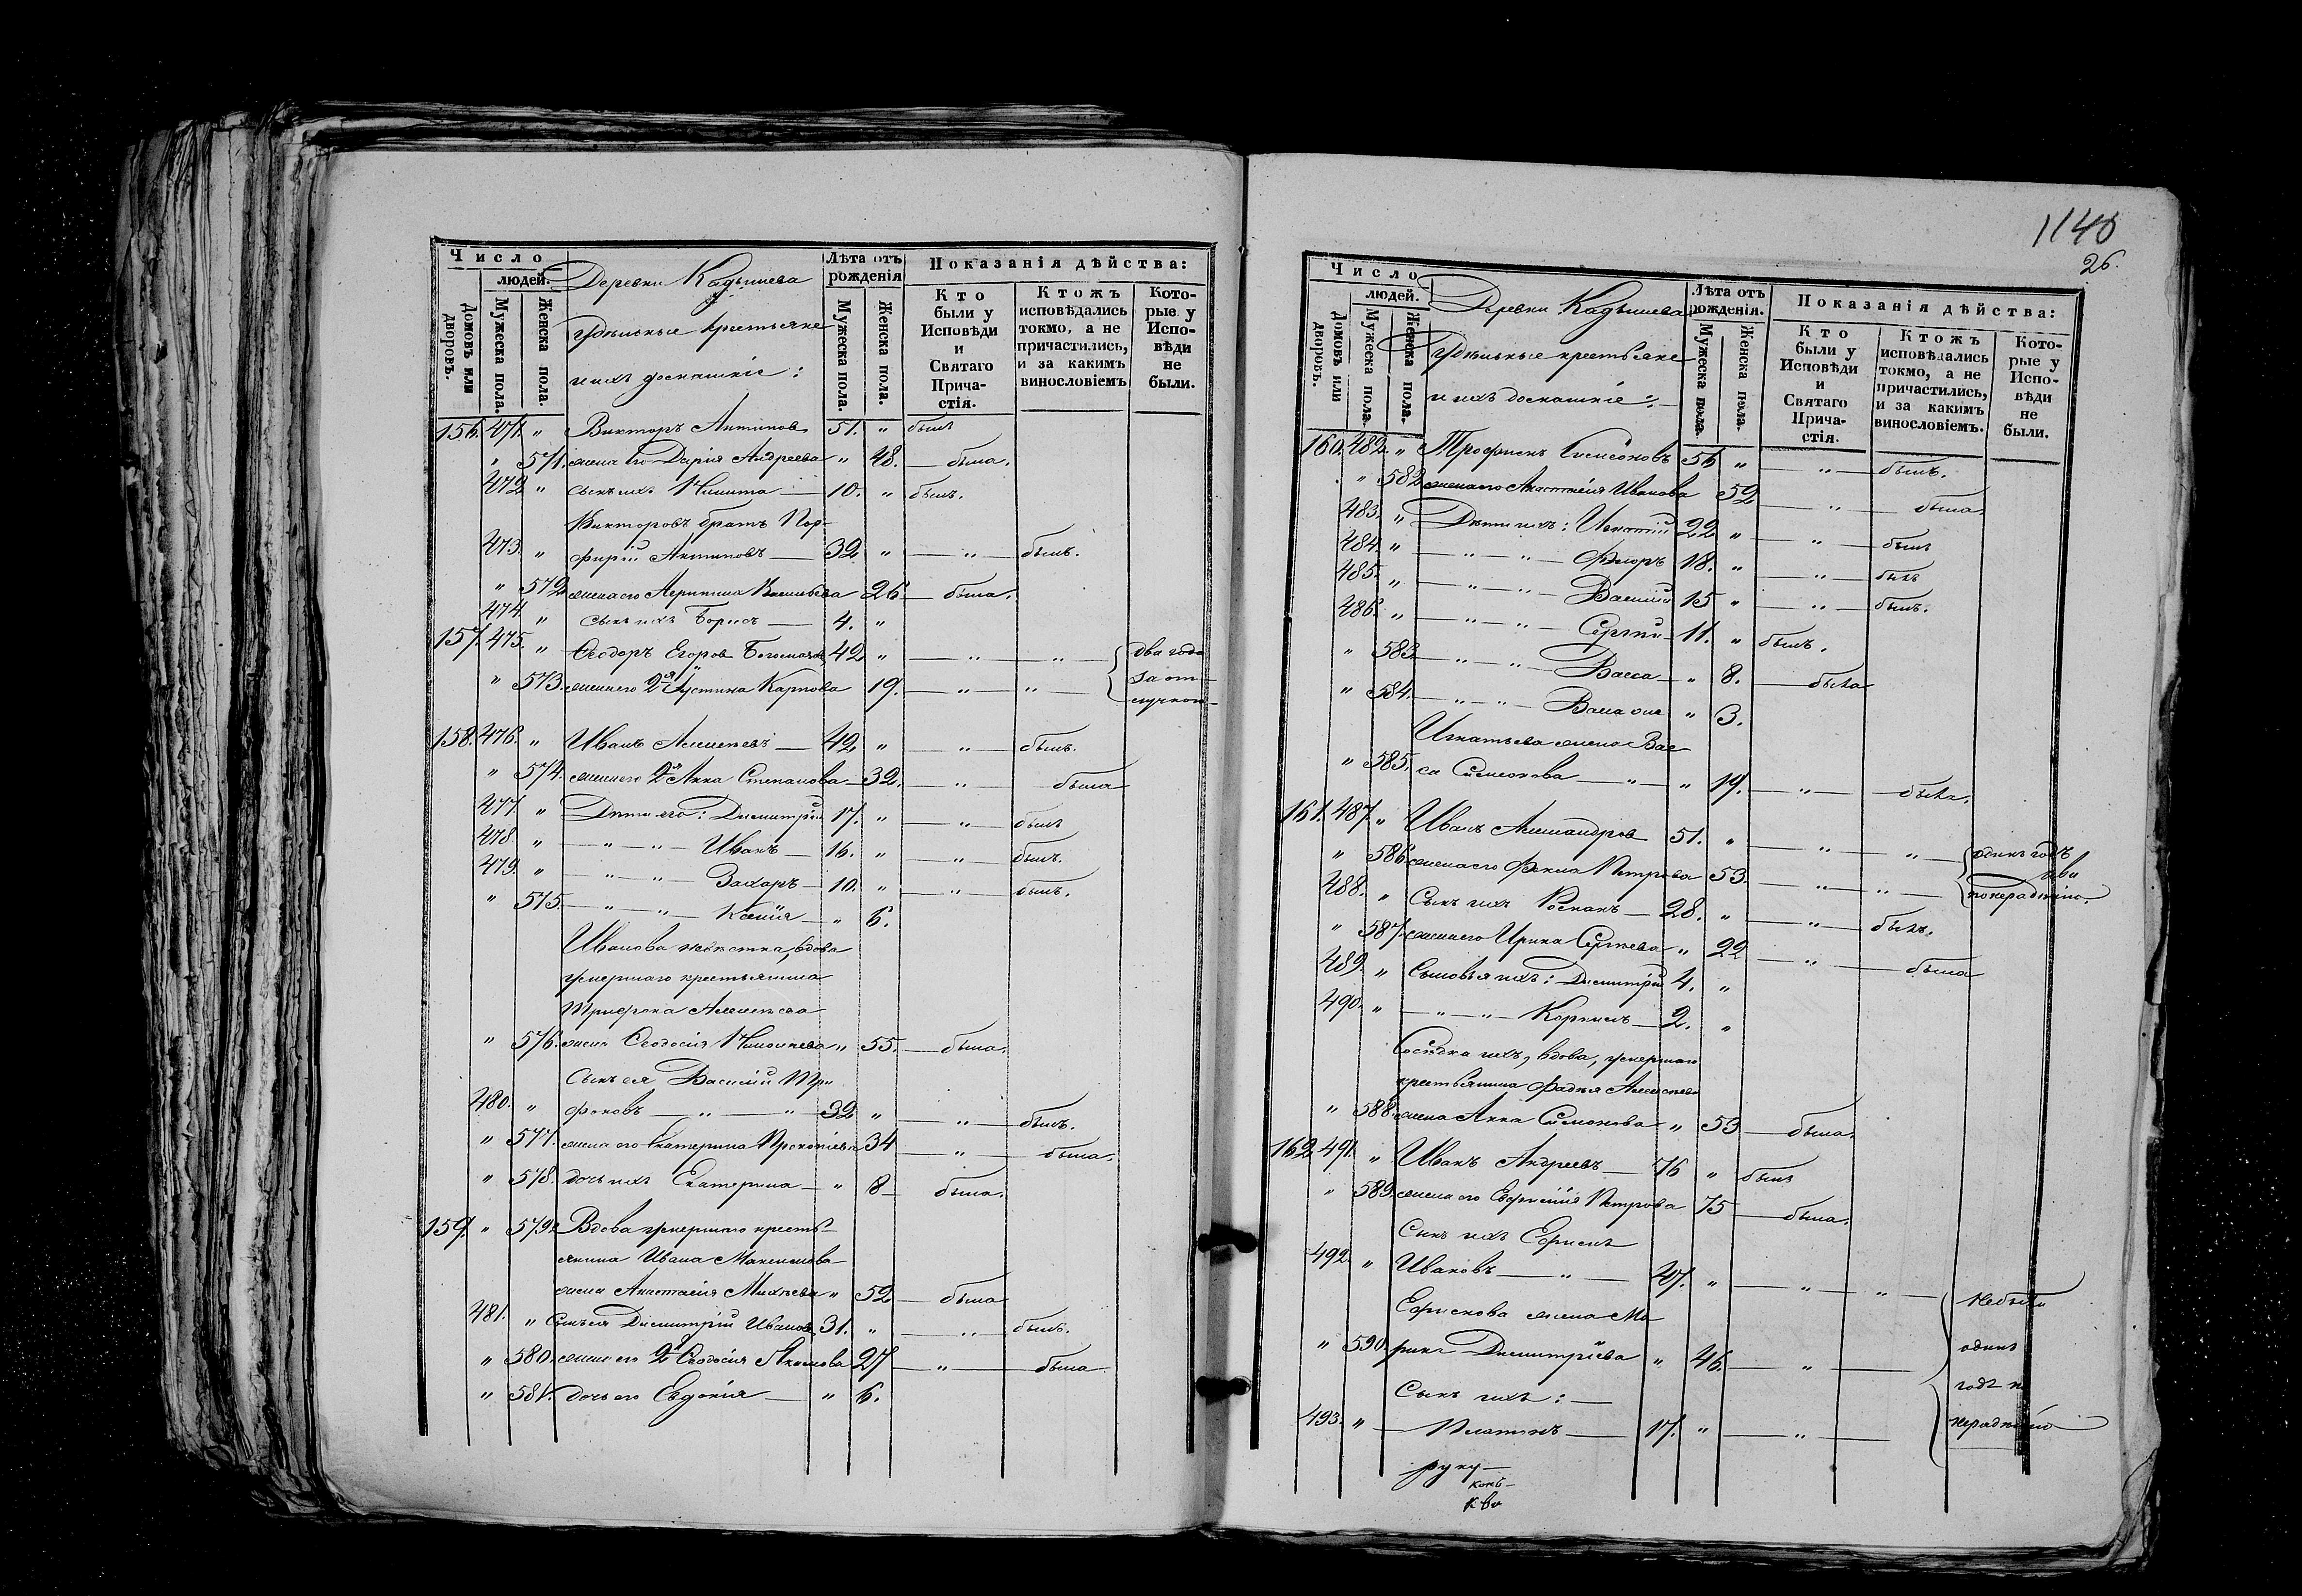 Число
людей.
Домовъ или дворовъ.
Мужеска пола.
Женска пола.
Деревни Кадышева
удѣльные крестьяне
и ихъ домашніе:
Лѣта отъ рожденія
Мужеска пола.
Женска пола.
Показанія дѣйства:
Кто были у Исповѣди и Святаго Прича-стія.
Ктожъ исповѣдались токмо, а не причастились, и за какимъ винословіемъ
Кото-рые у Испо-вѣди не были.
156. 471. " Викторъ Антиповъ 51. " былъ
" 571. жена его Дарія Андреева " 48. была.
472 " сынъ ихъ Никита 10. " былъ.
Викторовъ братъ Пор-
473. " фирій Антиповъ 32 " " былъ.
" 572 жена его Васильева 26 была.
474. " сынъ ихъ Борисъ 4. "
157. 475. " Ѳеодоръ Егоровъ 42 " " " два года
" 573. жена его 2я Устина Карпова 19. " " за от-
лучкою
158. 476. " Иванъ Алексѣевъ 42 " " былъ.
" 574. жена его 2я Анна Степанова 32. " была
477 " Дѣти его: Димитрій 17. " " былъ
478 " " " Иванъ 16. " " былъ.
479. " " " Захаръ 10. " " былъ.
" 575. " " Ксенія " 6.
Иванова невѣстка, вдова
умершаго крестьянина
Трифона Алексѣева
" 576. жена Ѳеодосія " 55. была.
Сынъ ея Василій Три
480. " фоновъ " " 32 " " былъ.
" 577. жена его Екатерина Прокопіева 34 " была.
" 578. дочь ихъ Екатерина " 8 была.
159. " 579. Вдова умершаго кресть-
янина Ивана Максимова
жена Анастасія Михѣева " 52 была
481. " Сынъ ея Димитрій Ивановъ 31. " " былъ.
" 580. жена его 2я Ѳеодосія Акимова 27 " была
" 581. дочь его Евдокія " 6.
1140
26.
Число
людей.
Домовъ или дворовъ.
Мужеска пола.
Женска пола.
Деревни Кадышева
Удѣльные крестьяне
и ихъ домашніе:
Лѣта отъ рожденія.
Мужеска пола.
Женска пола.
Показанія дѣйства:
Кто были у Исповѣди и Святаго Прича-стія.
Ктожъ исповѣдались токмо, а не причастились, и за какимъ винословіемъ.
Кото-рые у Испо-вѣди не были.
160. 482. " Трофимъ Симеоновъ 56 " " былъ.
" 582 жена его Анастасія Иванова 52 " была.
483. " Дѣти ихъ: Игнатій 22 " " былъ
484. " " " Ѳедоръ 18. " " былъ
485. " " " Василій 15 " " былъ.
486. " " " Сергій 11. " былъ.
" 583 " " Васса " 8. была
" 584. " " " 3.
Игнатьева жена Вас
" 585. са Симеонова " " 19. " была.
161. 487. " Иванъ Александровъ 51. " " " одинъ годъ
" 586. жена его Ѳекла Петрова 53. " " по нерадѣнію.
488. " Сынъ ихъ Романъ 28. " " былъ.
" 587. жена его Ирина Сергѣева " 22 " была
489. " Сыновья ихъ: Димитрій 4. "
490. " " " Корнилъ 2. "
Сосѣдка ихъ, вдова, умершаго
крестьянина Фадѣя Алексѣева
" 588 жена Анна Симонова " 53 была.
162 491. " Иванъ Андреевъ 76 " былъ
" 589. жена его Евфимія Петрова 75 была.
Сынъ ихъ Ефимъ
492. " Ивановъ " 47. " " " не были
Ефимова жена Ма
" 590. рина Димитріева " 46. " одинъ
Сынъ ихъ: годъ по
493. " Платонъ 17. " " нерадѣнію
руку-